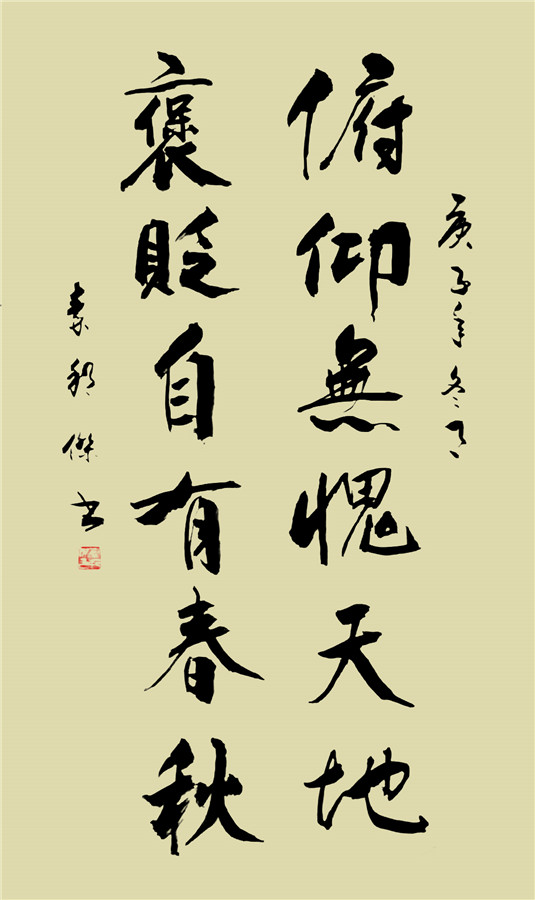 庚子年冬日
俯仰無愧天地
褒貶自有春秋
傑書